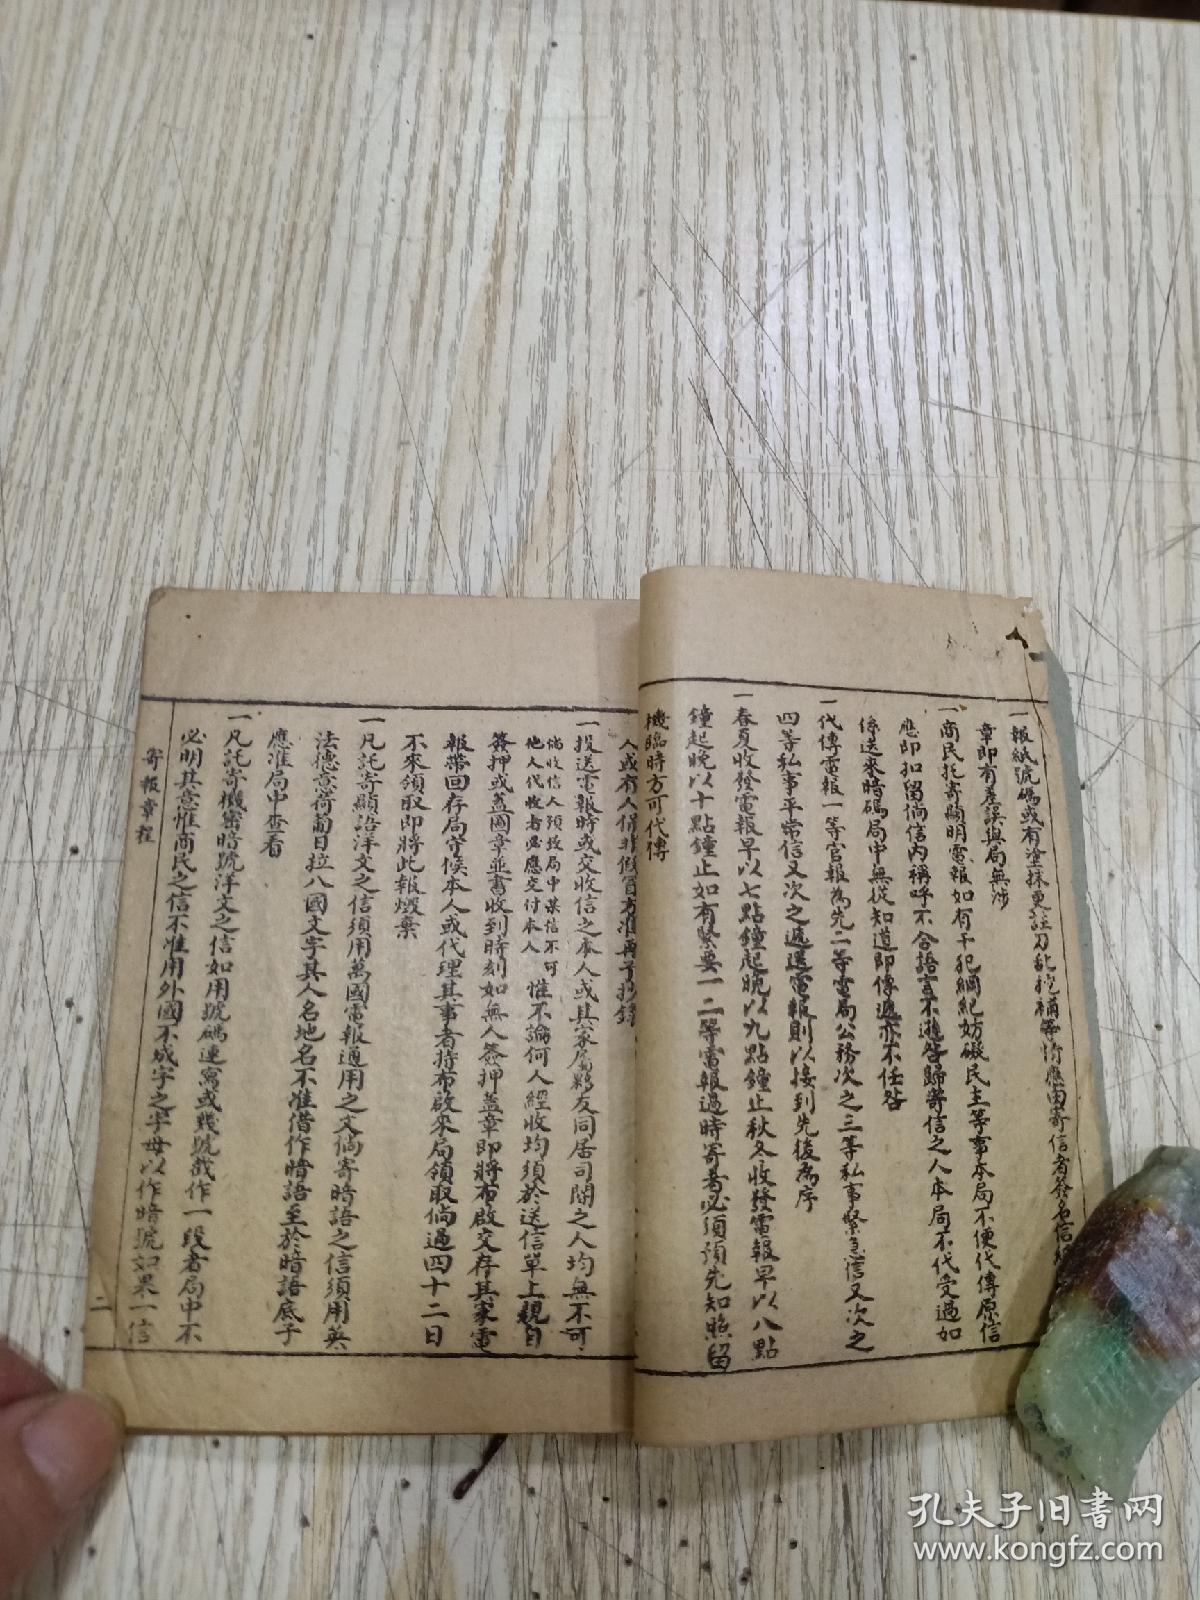 一報紙號碼或有塗抹更註刀乱挖補等情應由寄信者簽名信紙
章即有差誤與局無涉
一商民托寄顯明電報如有干犯綱紀妨礙民主等事本局不便代傳原信
應即扣留倘信內稱呼不合語言不遜咎歸寄信之人本局不代受過如
係送來暗碼局中無從知道即傳遞亦不任咎
一代傳電報一等官報為先二等電局公務次之三等私事緊急信又次之
四等私事平常信又次之遞送電報則以接到先後為序
一春夏收發電報早以七點鐘起晚以九點鐘止秋冬收發電報早以八點
鐘起晚以十點鐘止如有緊要一二等電報過時寄者必須預先知照留
機臨時方可代傳
人或有人保非假冒方准再予抄錄
一投送電報時或交收信之本人或其家屬夥友同居司閽之人均無不可
倘收信人預致局中某信不可
他人代收者必應交付本人
惟不論何人經收均須於送信單上親自
簽押或蓋圖章並書收到時刻如無人簽押蓋章即將布啟交存其家電
報帶回存局守候本人或代理其事者持布啟來局領取倘過四十二日
不來領取即將此報燬棄
一凡託寄顯語洋文之信須用萬國電報通用之文倘寄暗語之信須用英
法德意荷葡日拉八國文字其人名地名不准借作暗語至於暗語底子
應准局中查看
一凡託寄機密暗號洋文之信如用號碼連寫或幾號截作一段者局中不
必明其意惟商民之信不准用外國不成字之字母以作暗號如果一信
寄報章程
二
孔夫子旧书网
www.kongfz.com